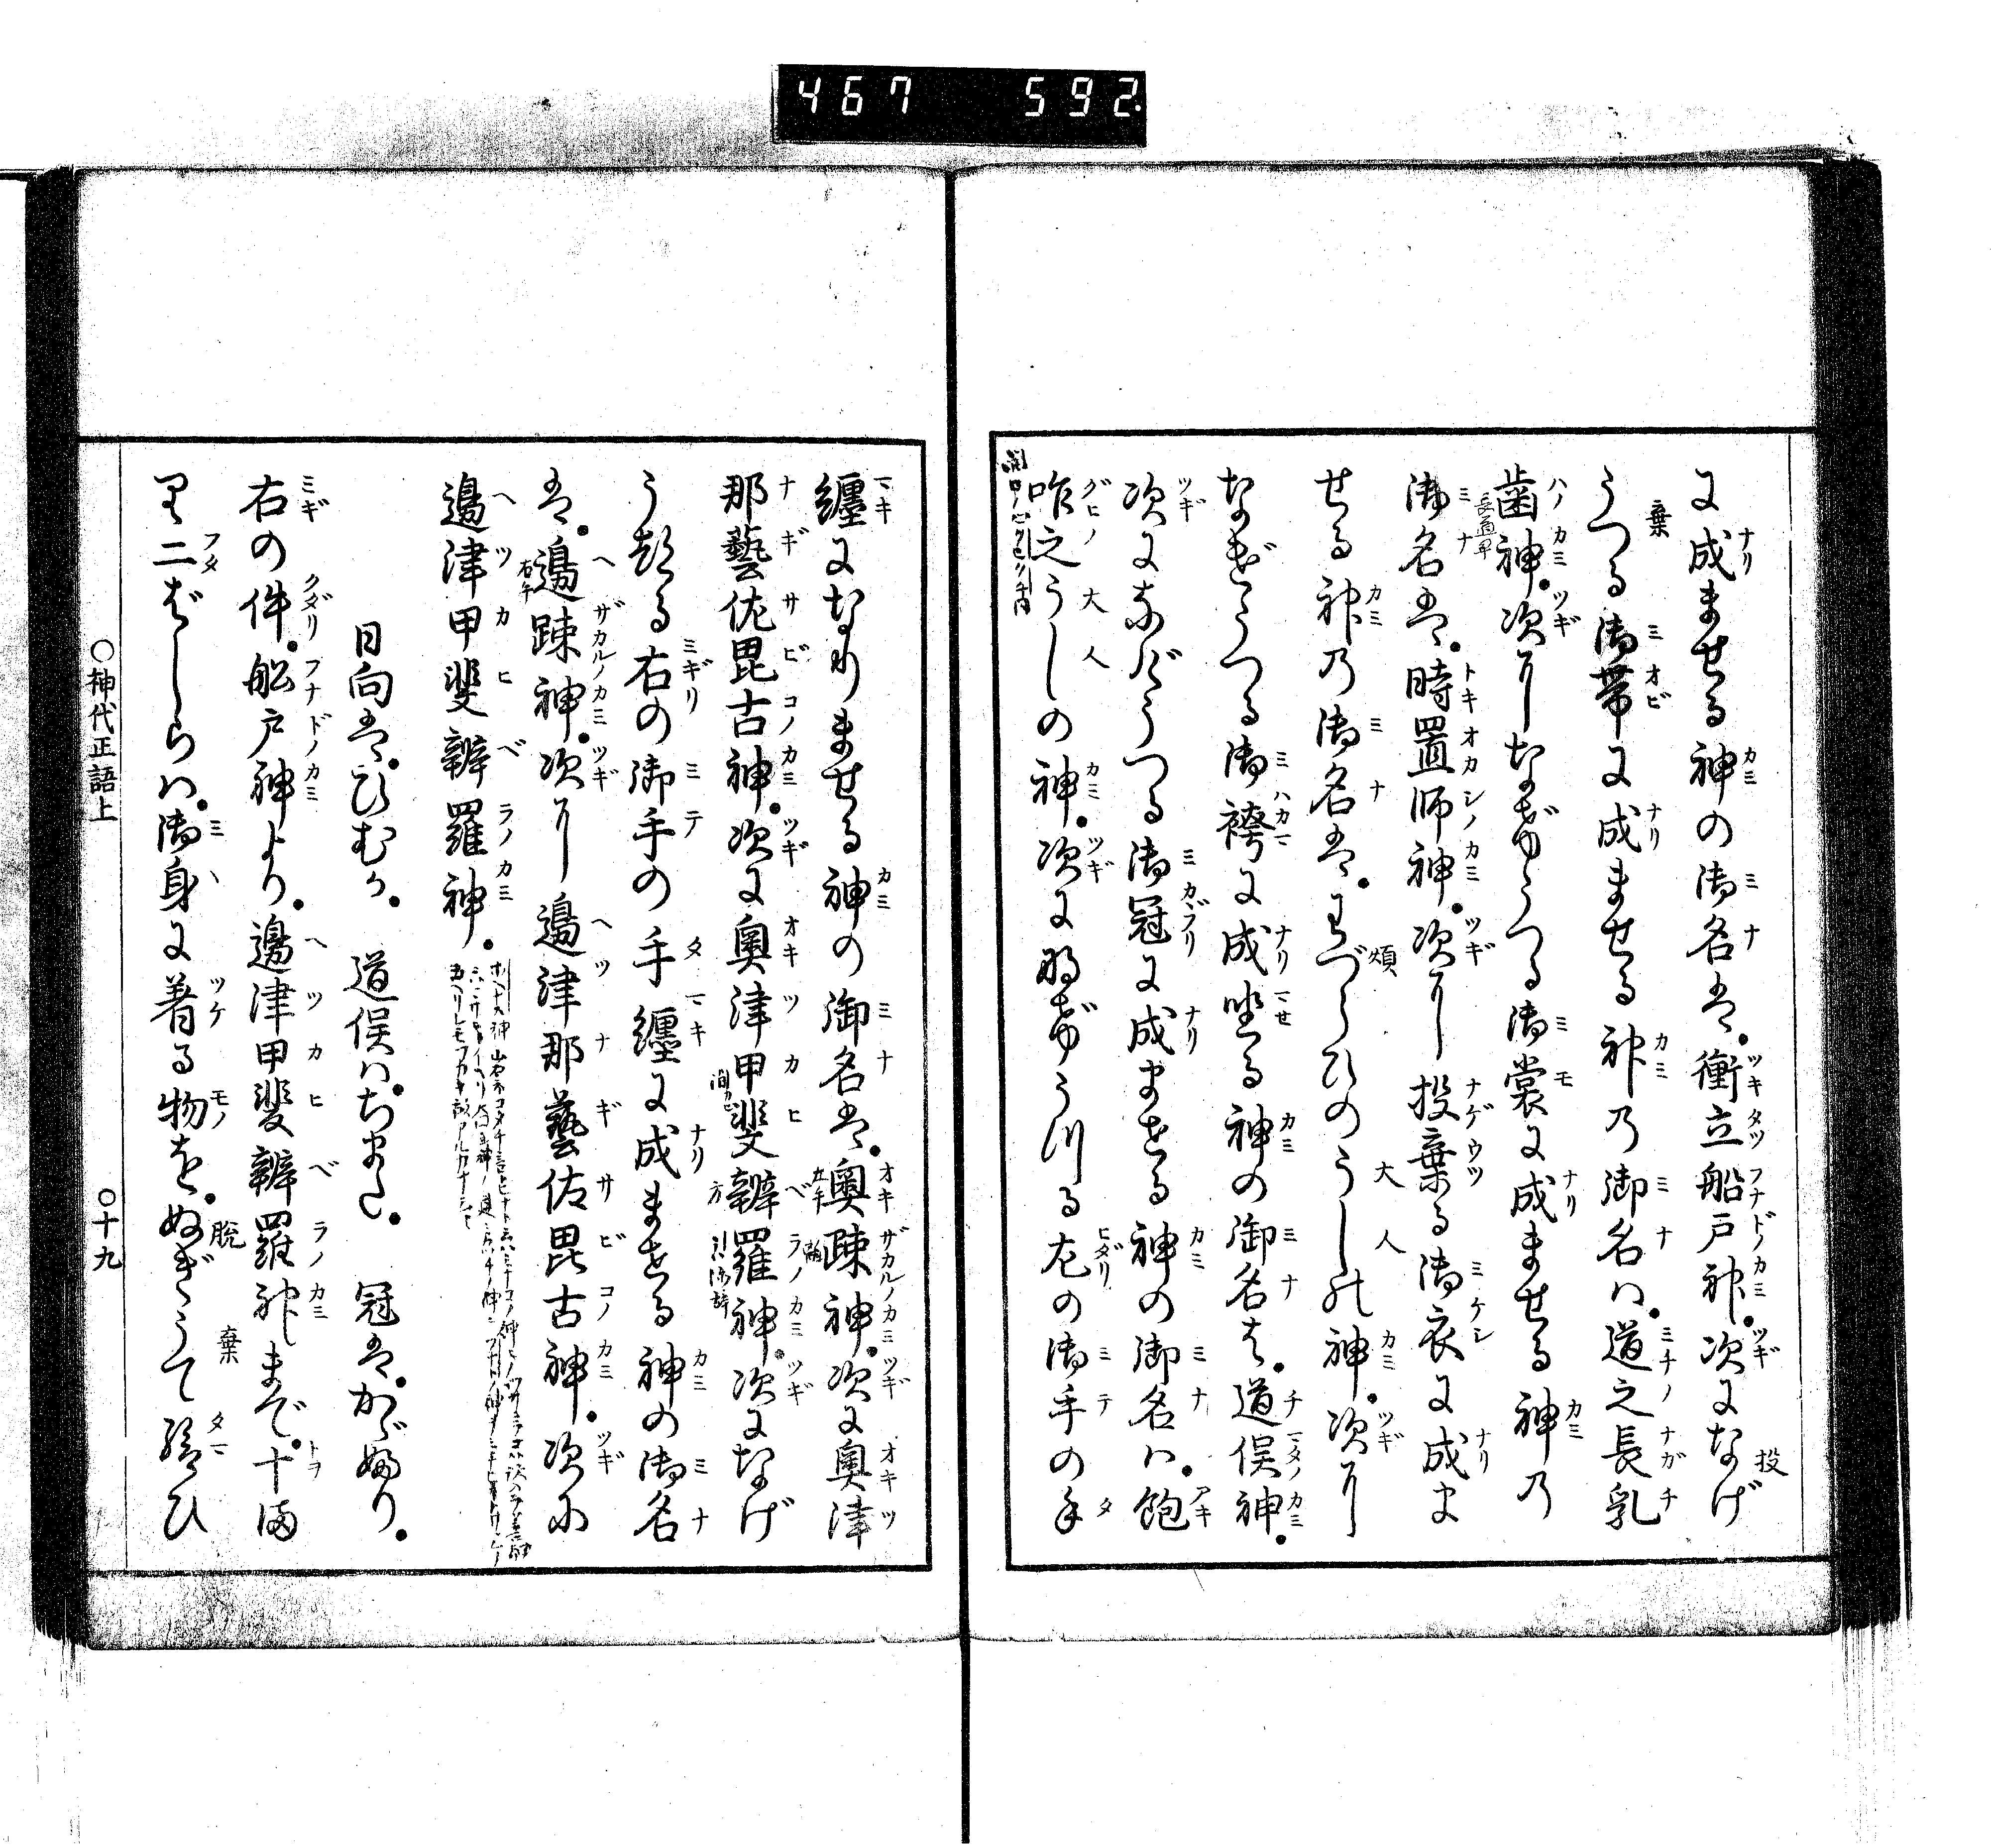 467 592
に成ませる神の御名は。衝立船戸神。次になげ
うつる御帯に成ませる神の御名は。道之長乳
歯神。次になげうつる御裳に成ませる神の
御名は。時置師神。次に投棄る御衣に成ま
せる神の御名は。わづらひのうしの神。次に
なげうつる御褌に成坐る神の御名は。道俣神。
次になげうつる御冠に成ませる神の御名は。飽
咋之うしの神。次になげうつる左の御手の手
纏になりませる神の御名は。奥疎神。次に奥津
那藝佐毘古神。次に奥津甲斐辨羅神。次になげ
うつる右の御手の手纏に成ませる神の御名
は。邊疎神。次に邊津那藝佐毘古神。次に
邊津甲斐辨羅神。
日向は。ひむか。 道俣は。ちまた。 冠は。かゞぶり。
右の件。船戸神より。邊津甲斐辨羅神まで。十まり
二ばしらは。御身に着る物を。ぬぎうて給ひ
○神代正語上 ○十九